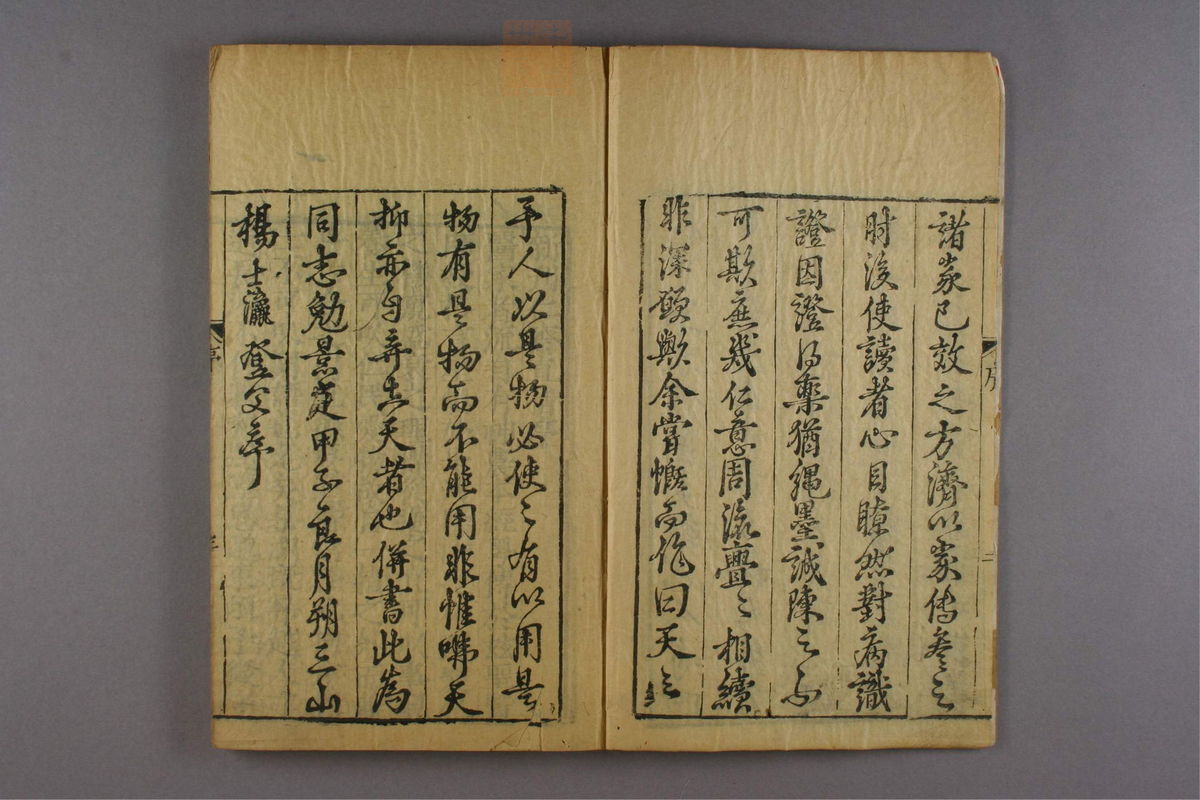 諸家已效之方濟以家傳參之
肘後使讀者心目瞭然對病識
證因證得藥猶繩墨誠陳之不
可欺庶幾仁意周流亹〻相續
非深願歟余嘗慨而作曰天之
予人以是物必使之有以用是
物有是物而不能用非惟咈天
抑亦自弃其天者也併書此為
同志勉景定甲子良月朔三山
楊士瀛登父序